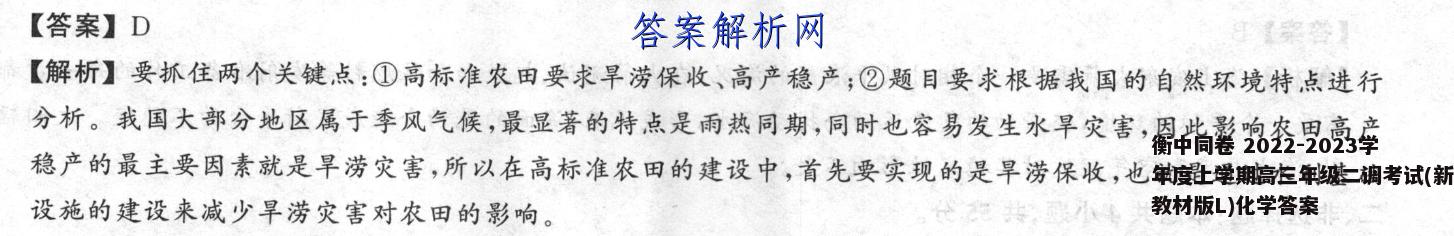 【答案】D
答案解析网
【解析】要抓住两个关键点:①高标准农田要求旱涝保收、高产稳产;②题目要求根据我国的自然环境特点进行
分析。我国大部分地区属于季风气候,最显著的特点是雨热同期,同时也容易发生水旱灾害,因此影响农田高产
稳产的最主要因素就是旱涝灾害,所以在高标准农田的建设中,首先要实现的是旱涝保收,也
设施的建设来减少旱涝灾害对农田的影响。
衡中同卷 2022-2023学
年度上学期高三年级二调考试(新
教材版L)化学答案